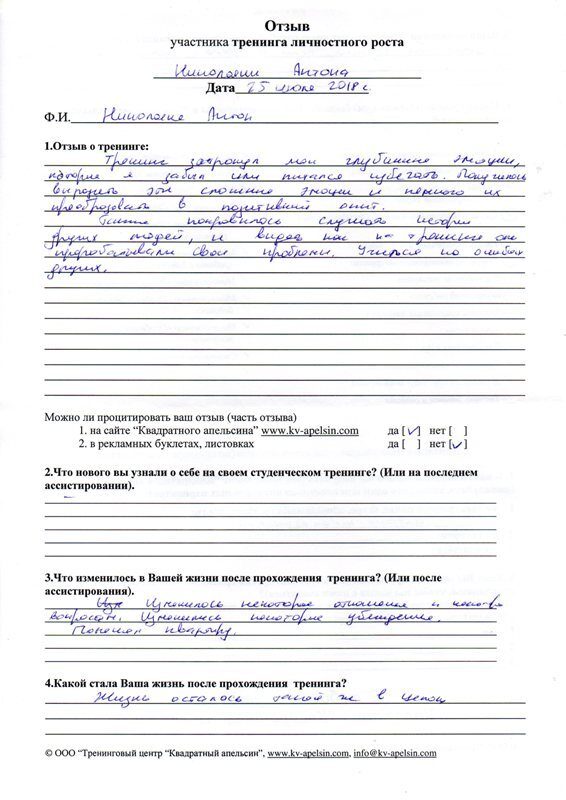 Отзыв
участника тренинга личностного роста
Николаенко Антона
Дата 25 июля 2018 г.
Ф.И. Николаенко Антон
1.Отзыв о тренинге:
Тренинг затронул мои глубинные эмоции,
которые я забыл или пытался избегать. Получилось
выразить эти сложные эмоции и немного их
преобразовать в позитивный опыт.
Также понравилось слушать истории
других людей, и видеть как на тренинге они
прорабатывали свои проблемы. Учиться на ошибках
других.
Можно ли процитировать ваш отзыв (часть отзыва)
1. на сайте “Квадратного апельсина” www.kv-apelsin.com да [✓] нет [ ]
2. в рекламных буклетах, листовках да [ ] нет [✓]
2.Что нового вы узнали о себе на своем студенческом тренинге? (Или на последнем
ассистировании).
–
3.Что изменилось в Вашей жизни после прохождения тренинга? (Или после
ассистирования).
Изменилось некоторое отношение к
вопросам. Изменились некоторые убеждения.
Поменял квартиру.
4.Какой стала Ваша жизнь после прохождения тренинга?
Жизнь осталась такой же в целом
© ООО “Тренинговый центр “Квадратный апельсин”, www.kv-apelsin.com, info@kv-apelsin.com